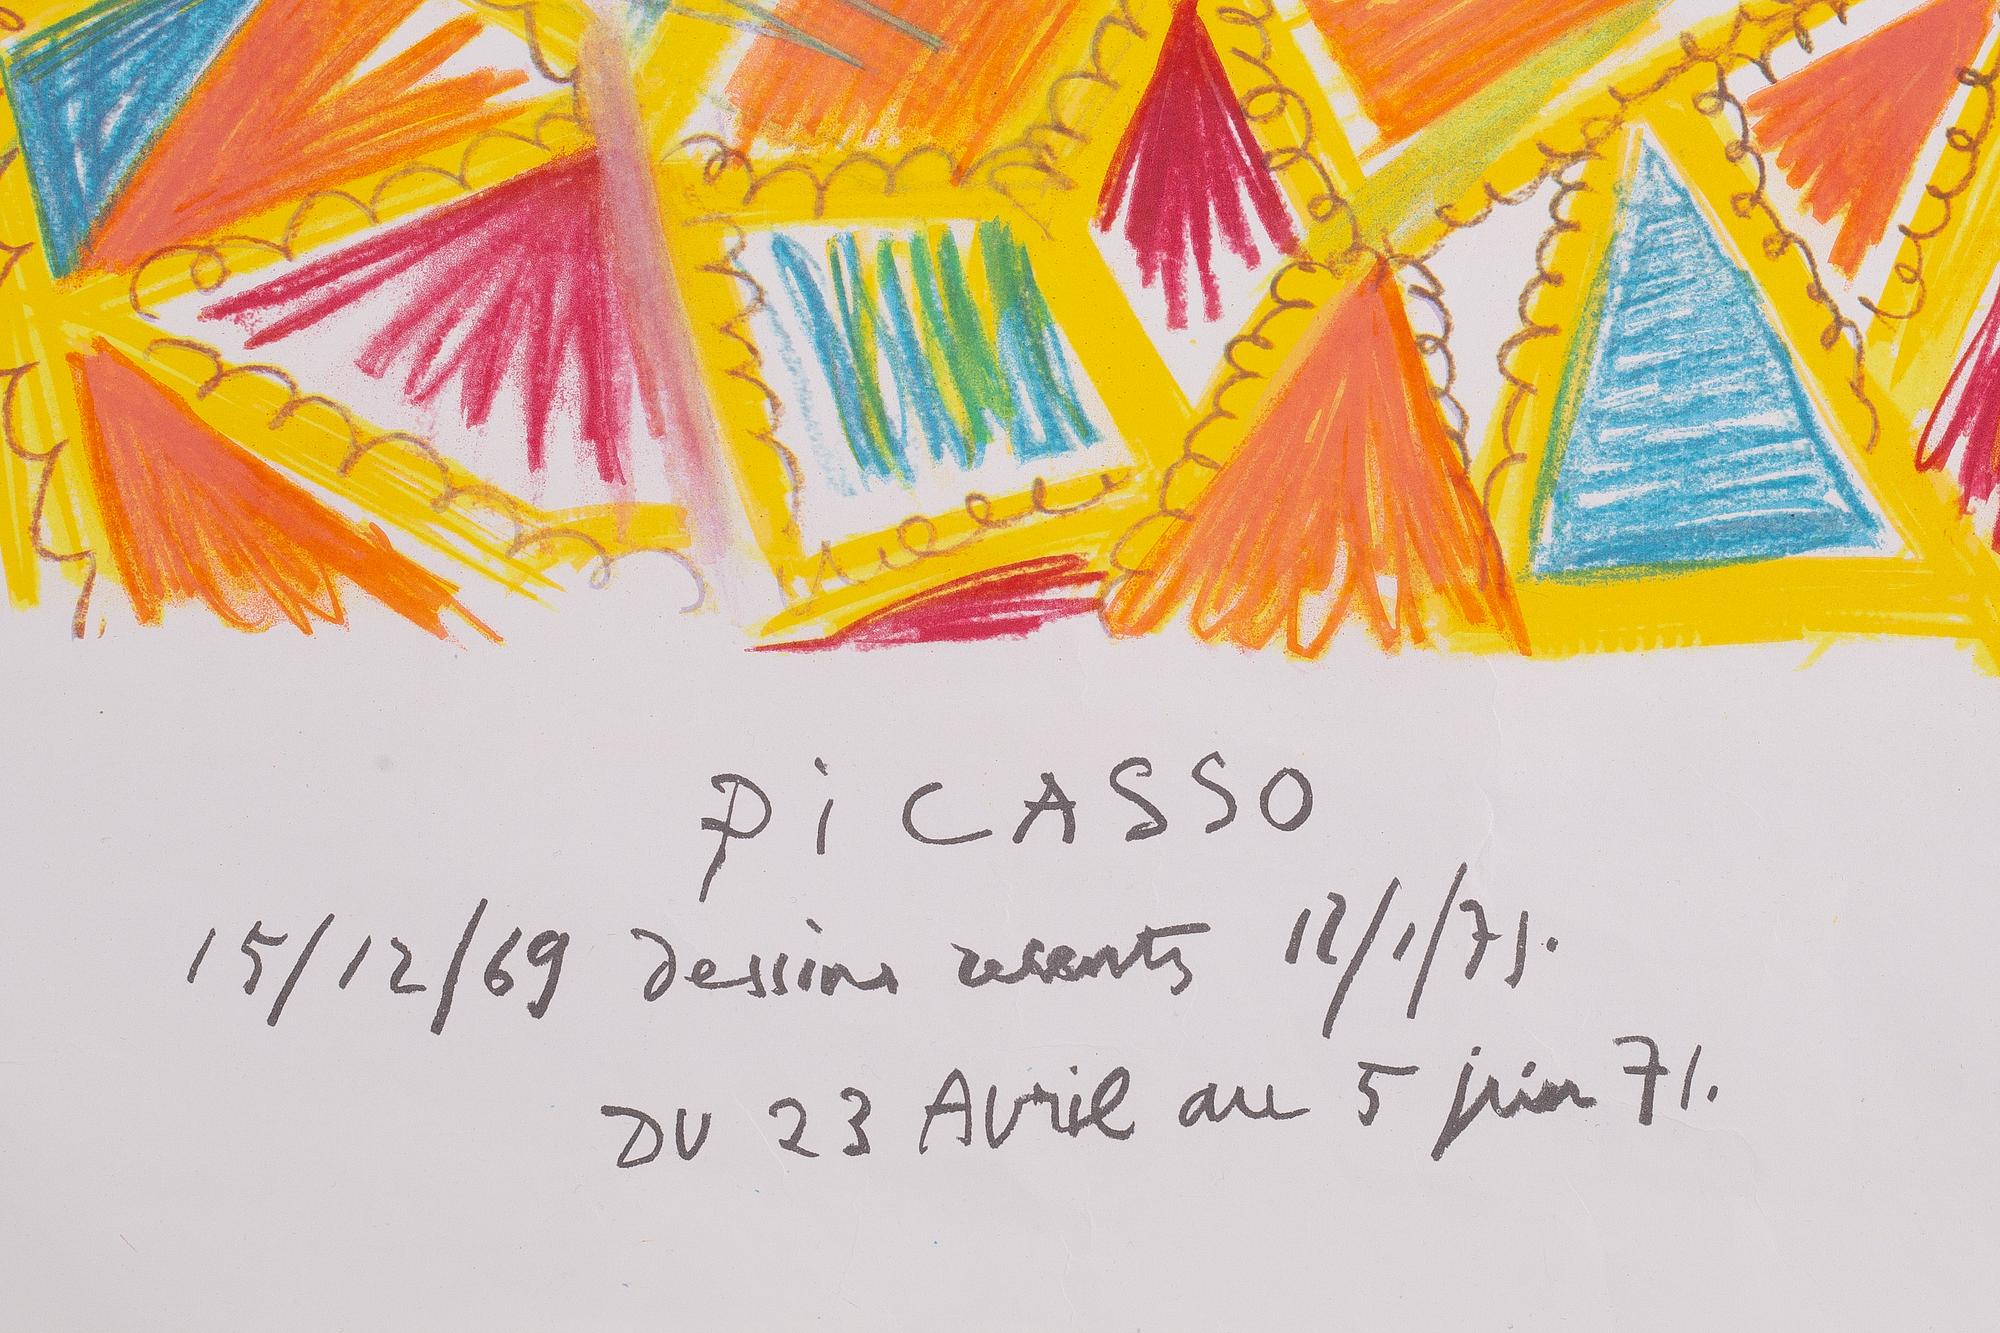 PiCASSO
15/12/69 dessins resents 12/1/71.
DU 23 Avril au 5 juin 71.